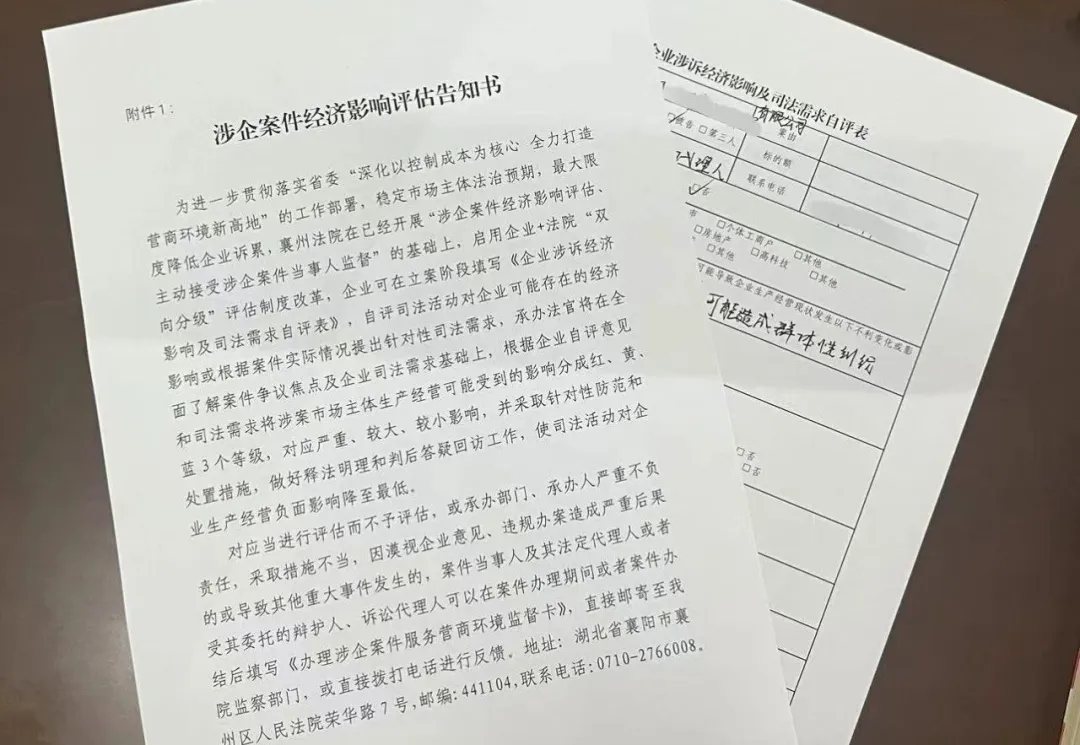 附件1：
涉企案件经济影响评估告知书
为进一步贯彻落实省委“深化以控制成本为核心 全力打造
营商环境新高地”的工作部署，稳定市场主体法治预期，最大限
度降低企业诉累，襄州法院在已经开展“涉企案件经济影响评估、
主动接受涉企案件当事人监督”的基础上，启用企业+法院“双
向分级”评估制度改革，企业可在立案阶段填写《企业涉诉经济
影响及司法需求自评表》，自评司法活动对企业可能存在的经济
影响或根据案件实际情况提出针对性司法需求，承办法官将在全
面了解案件争议焦点及企业司法需求基础上，根据企业自评意见
和司法需求将涉案市场主体生产经营可能受到的影响分成红、黄、
蓝3个等级，对应严重、较大、较小影响，并采取针对性防范和
处置措施，做好释法明理和判后答疑回访工作，使司法活动对企
业生产经营负面影响降至最低。
对应当进行评估而不予评估，或承办部门、承办人严重不负
责任，采取措施不当，因漠视企业意见、违规办案造成严重后果
的或导致其他重大事件发生的，案件当事人及其法定代理人或者
受其委托的辩护人、诉讼代理人可以在案件办理期间或者案件办
结后填写《办理涉企案件服务营商环境监督卡》，直接邮寄至我
院监察部门，或直接拨打电话进行反馈。地址：湖北省襄阳市襄
州区人民法院荣华路7号，邮编：441104，联系电话：0710-2766008。
企业涉诉经济影响及司法需求自评表
有限公司
案由
☑被告 □第三人
标的额
代理人
联系电话
☑否
□个体工商户 □其他
□房地产 □高科技 □其他
□其他 □其他
可能导致企业生产经营现状发生以下不利变化或影
可能造成群体性纠纷
□否
□否